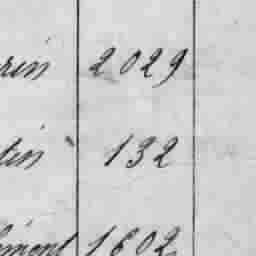 rin 2029
tin 132
ément 1602